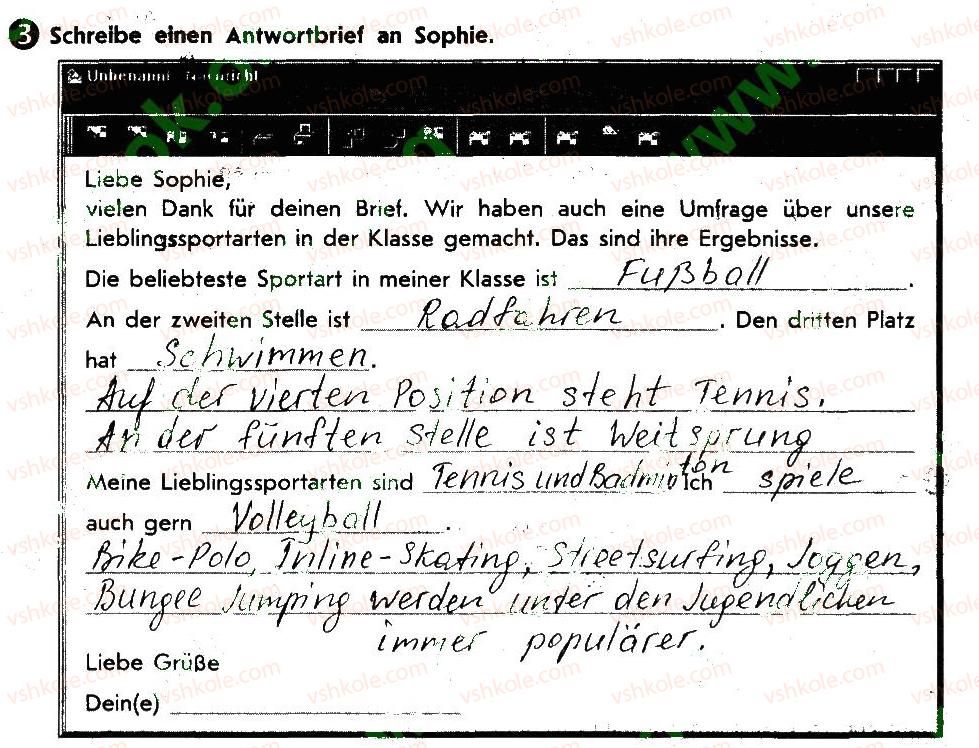 3 Schreibe einen Antwortbrief an Sophie.
Unbenannt
Liebe Sophie,
vielen Dank für deinen Brief. Wir haben auch eine Umfrage über unsere
Lieblingssportarten in der Klasse gemacht. Das sind ihre Ergebnisse.
Die beliebteste Sportart in meiner Klasse ist Fußball.
An der zweiten Stelle ist Radfahren. Den dritten Platz
hat Schwimmen.
Auf der vierten Position steht Tennis.
An der fünften Stelle ist Weitsprung
Meine Lieblingssportarten sind Tennis und Badminton Ich spiele
auch gern Volleyball.
Bike-Polo, Inline-Skating, Streetsurfing, Joggen,
Bungee Jumping werden unter den Jugendlichen
immer populärer.
Liebe Grüße
Dein(e)